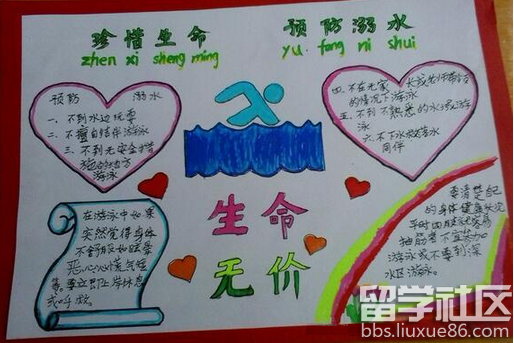 珍惜生命 预防溺水
zhen xi sheng ming yu fang ni shui
预防 溺水
一、不到水边玩耍
二、不擅自结伴游泳
三、不到无安全措
施的地方
游泳
四、不在无家长或老师带领
的情况下游泳
五、不到不熟悉的水域游
泳
六、不下水救落水
同伴
生命
无价
在游泳中如果
突然觉得身体
不舒服如眩晕
恶心心慌气短
等要立即上岸休息
或呼救
要清楚自己
的身体健康状况
平时四肢就容易
抽筋者不宜参加
游泳或不要到深
水区游泳。
留学社区
bbs.liuxue86.com